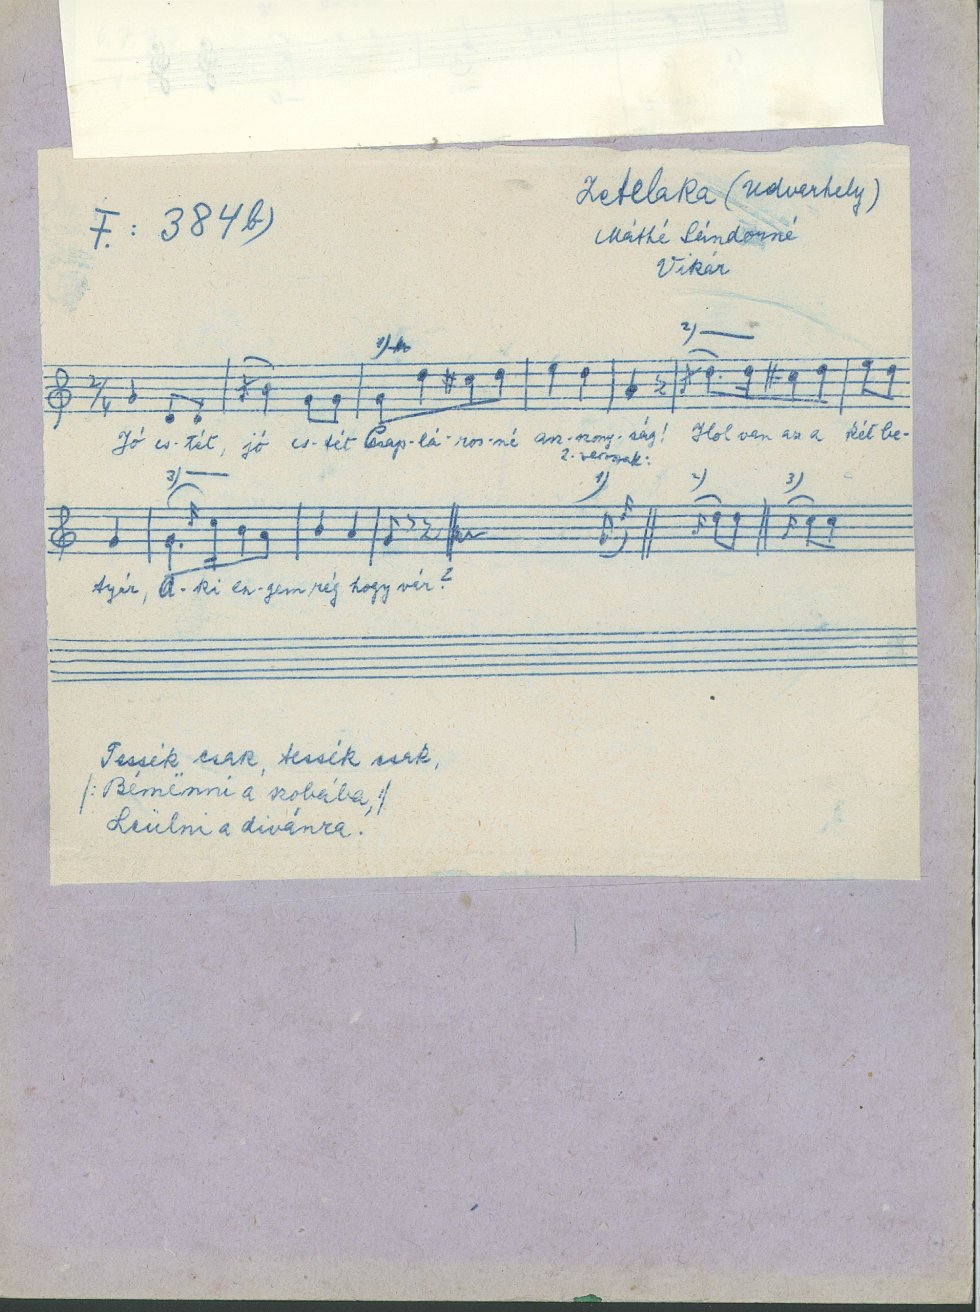 F.: 384b)
Zetelaka (Udvarhely)
Máthé Sándorné
Vikár
1)
2)
2/4
Jó es-tét, jó es-tét Csap-lá-ros-né asz-szony-ság! Hol van az a két be-
2. versszak:
3) 1) 2) 3)
tyár, A-ki en-gem rég hogy vár?
Tessék csak, tessék csak,
/: Bémënni a szobába, :/
Leülni a divánra.